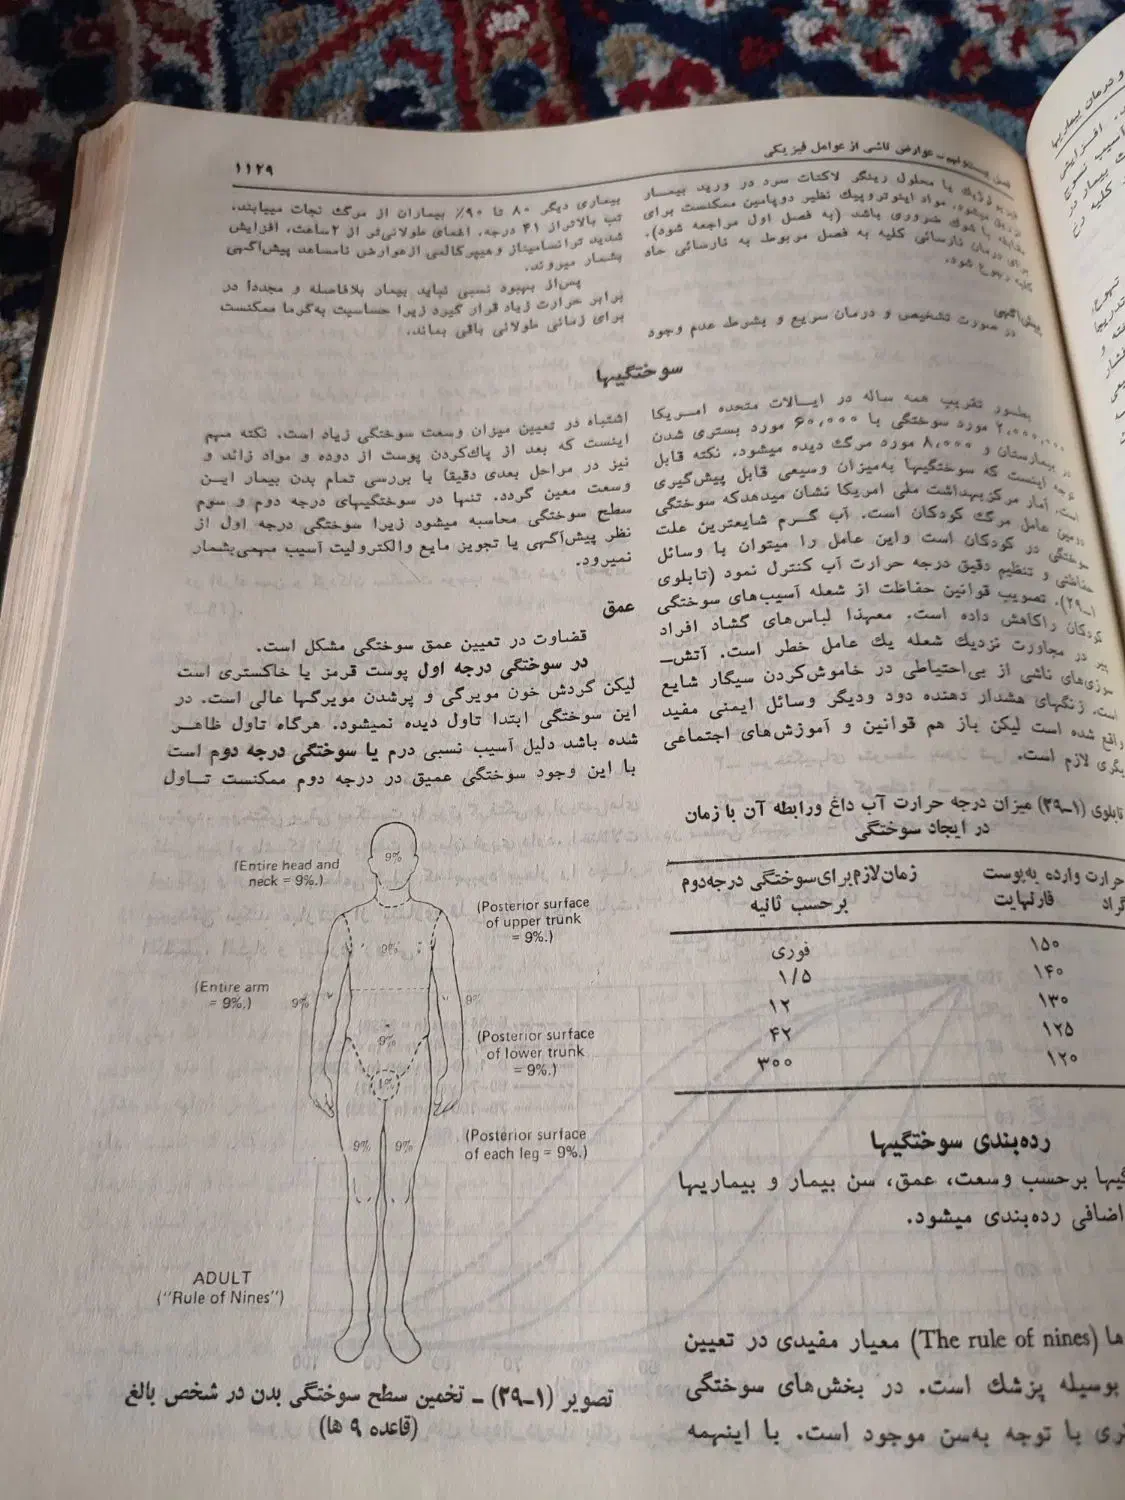 ۱۱۲۹
عوارض ناشی از عوامل فیزیکی
یا محلول رینگر لاکتات سرد در ورید بیمار
میشود. مواد اینوتروپیك نظیر دوپامین ممکنست برای
شوك ضروری باشد (به فصل اول مراجعه شود).
درمان نارسائی کلیه به فصل مربوط به نارسائی حاد
کلیه رجوع شود.
پیش‌آگهی
در صورت تشخیص و درمان سریع و بشرط عدم وجود
بیماری دیگر ۸۰ تا ۹۰٪ بیماران از مرگ نجات مییابند.
تب بالاتراز ۴۱ درجه، اغمای طولانی‌تر از ۲ساعت، افزایش
شدید ترانسامیناز وهیپرکالمی ازعوارض نامساعد پیش‌آگهی
بشمار میروند.
پس‌از بهبود نسبی نباید بیمار بلافاصله و مجدداً در
برابر حرارت زیاد قرار گیرد زیرا حساسیت به‌گرما ممکنست
برای زمانی طولانی باقی بماند.
سوختگیها
بطور تقریب همه ساله در ایالات متحده امریکا
۲٫۰۰۰٫۰۰۰ مورد سوختگی با ۶۰٫۰۰۰ مورد بستری شدن
در بیمارستان و ۸٫۰۰۰ مورد مرگ دیده میشود. نکته قابل
توجه اینست که سوختگیها به‌میزان وسیعی قابل پیش‌گیری
است. آمار مرکزبهداشت ملی امریکا نشان میدهدکه سوختگی
دومین عامل مرگ کودکان است. آب گرم شایعترین علت
سوختگی در کودکان است واین عامل را میتوان با وسائل
حفاظتی و تنظیم دقیق درجه حرارت آب کنترل نمود (تابلوی
۱ـ۳۹). تصویب قوانین حفاظت از شعله آسیب‌های سوختگی
کودکان راکاهش داده است. معهذا لباس‌های گشاد افراد
پیر در مجاورت نزدیك شعله یك عامل خطر است. آتش‌ـ
سوزی‌های ناشی از بی‌احتیاطی در خاموش‌کردن سیگار شایع
است. زنگهای هشدار دهنده دود ودیگر وسائل ایمنی مفید
واقع شده است لیکن باز هم قوانین و آموزش‌های اجتماعی
لازم است.
تابلوی (۱ـ۳۹) میزان درجه حرارت آب داغ ورابطه آن با زمان
در ایجاد سوختگی
حرارت وارده به‌پوست زمان‌لازم‌برای‌سوختگی درجه‌دوم
فارنهایت برحسب ثانیه
۱۵۰ فوری
۱۴۰ ۱/۵
۱۳۰ ۱۲
۱۲۵ ۴۲
۱۲۰ ۳۰۰
رده‌بندی سوختگیها
برحسب وسعت، عمق، سن بیمار و بیماریها
اضافی رده‌بندی میشود.
ها (The rule of nines) معیار مفیدی در تعیین
بوسیله پزشك است. در بخش‌های سوختگی
با توجه به‌سن موجود است. با اینهمه
اشتباه در تعیین میزان وسعت سوختگی زیاد است. نکته مهم
اینست که بعد از پاك‌کردن پوست از دوده و مواد زائد و
نیز در مراحل بعدی دقیقاً با بررسی تمام بدن بیمار این
وسعت معین گردد. تنها در سوختگیهای درجه دوم و سوم
سطح سوختگی محاسبه میشود زیرا سوختگی درجه اول از
نظر پیش‌آگهی یا تجویز مایع والکترولیت آسیب مهمی‌بشمار
نمیرود.
عمق
قضاوت در تعیین عمق سوختگی مشکل است.
در سوختگی درجه اول پوست قرمز یا خاکستری است
لیکن گردش خون مویرگی و پرشدن مویرگها عالی است. در
این سوختگی ابتدا تاول دیده نمیشود. هرگاه تاول ظاهر
شده باشد دلیل آسیب نسبی درم یا سوختگی درجه دوم است
با این وجود سوختگی عمیق در درجه دوم ممکنست تاول
9%
(Entire head and
neck = 9%.)
(Posterior surface
of upper trunk
= 9%.)
9%
(Entire arm
= 9%.)
9%
9%
9%
(Posterior surface
of lower trunk
= 9%.)
1%
9%
9%
(Posterior surface
of each leg = 9%.)
ADULT
("Rule of Nines")
تصویر (۱ـ۳۹) ـ تخمین سطح سوختگی بدن در شخص بالغ
(قاعده ۹ ها)